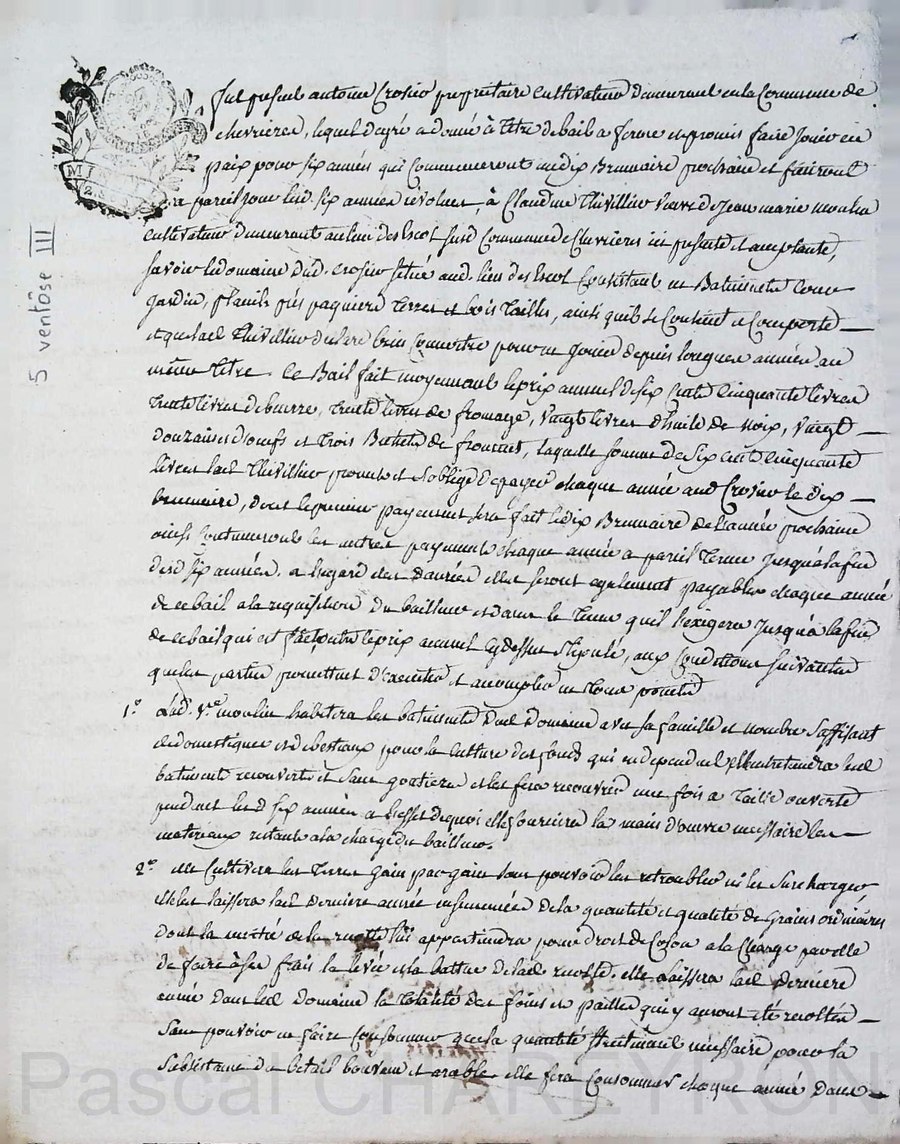 MINUTE
5 ventôse III
fut présent antoine Crosier propriétaire Cultivateur demeurant en la Commune de
chevrieres, lequel degré a donné à titre de bail a ferme et promis faire jouir en
paix pour six années qui Commenceront au dix Brumaire prochain et finiront
a pareil jour lesd six années révolues, à Claudine Thivillier veuve de jean marie moulin
cultivateur demeurant au lieu des Escot susd Commune de Chevrieres ici présente et acceptante,
savoir le domaine dud. Crosier situé aud. lieu des Escot Consistant en Batiments Cour
jardin, prés paquiers terres et bois taillis, ainsi qu'ils se Consistent et Comporte
et que lad Thivillier declare bien Connoitre pour en jouir depuis longues années au
même titre. Ce Bail fait moyennant le prix annuel de six Cents Cinquante livres
trente livres de beurre, trente livres de fromage, vingt livres d'huile de noix, vingt
douzaines d'oeufs et trois Bichets de froment, laquelle somme de Six cents Cinquante
livres lad Thivillier promet et s'oblige de payer chaque année aud Crosier le dix
brumaire, dont le premier payement sera fait le dix Brumaire de l'année prochaine
ainsi Continueront les autres payements chaque année a pareil terme jusqu'à la fin
desd six années. a l'égard des danrées elles seront egalement payables chaque année
de ce bail a la requisition du bailleur et dans le terme qu'il l'exigera jusqu'a la fin
de ce bail qui est fait outre le prix annuel cy dessus stipulé, aux Conditions suivantes
que les parties promettent d'exécuter et accomplir en tous points
1° Lad. Ve moulin habitera les batiments dud Domaine avec sa famille et nombre Suffisant
de domestiques et de bestiaux pour la Culture des fonds qui en dependent Elle entretiendra lesd
batiments recouverts et sans goutieres et les fera recouvrir une fois a Taille ouverte
pendant lesd six années a l'effet de quoi elle fournira la main d'œuvre nécessaire les
materiaux restants a la charge du bailleur.
2° elle Cultivera les Terres gain par gain sans pouvoir les retroubler ni les Surcharger
elle les laissera lad Derniere année ensemencées de la quantité et qualité de Grains ordinaires
Dont la moitié de la recolte lui appartiendra pour droit de Colon a la Charge par elle
de faire à ses frais la levée et la batture de lad recolte. elle laissera lad Derniere
année dans led Domaine la totalité des foins et pailles qui y auront été récoltés
Sans pouvoir en faire Consommer que la quantité strictement nécessaire pour la
Subsistance du betail bouvin et arable elle fera Consommer chaque année dans
Pascal CHAREYRON